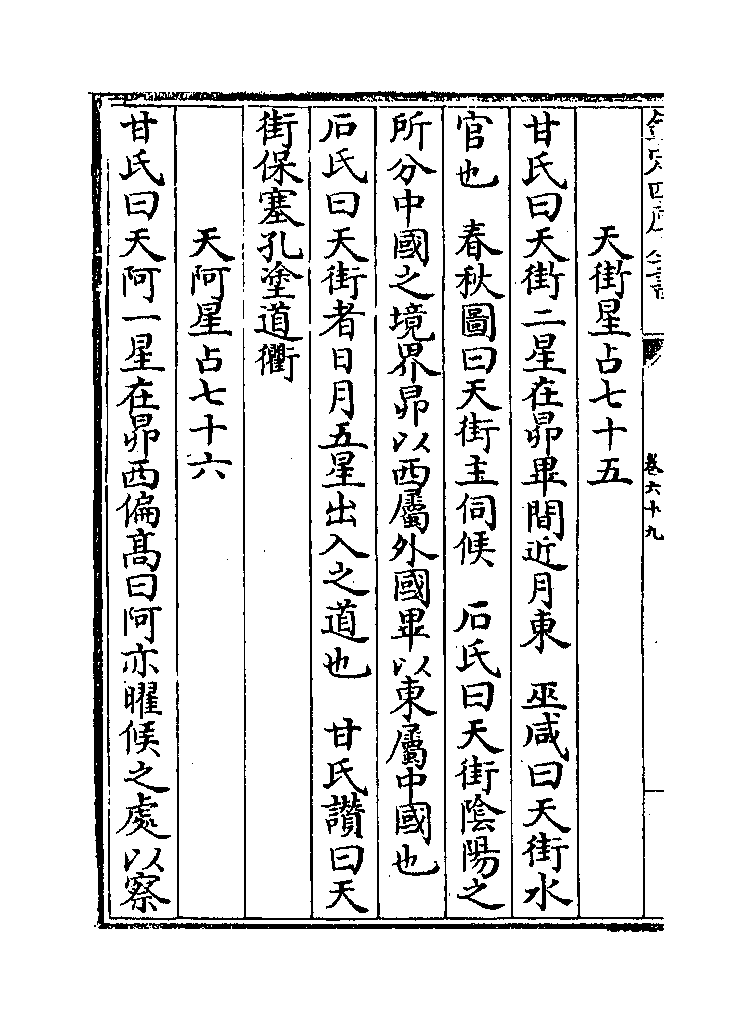 欽定四庫全書
卷六十九
天街星占七十五
甘氏曰天街二星在昴畢間近月東　巫咸曰天街水
官也　春秋圖曰天街主伺候　石氏曰天街陰陽之
所分中國之境界昴以西屬外國畢以東屬中國也
石氏曰天街者日月五星出入之道也　甘氏讚曰天
街保塞孔塗道衢
天阿星占七十六
甘氏曰天阿一星在昴西偏髙曰阿亦曜候之處以察